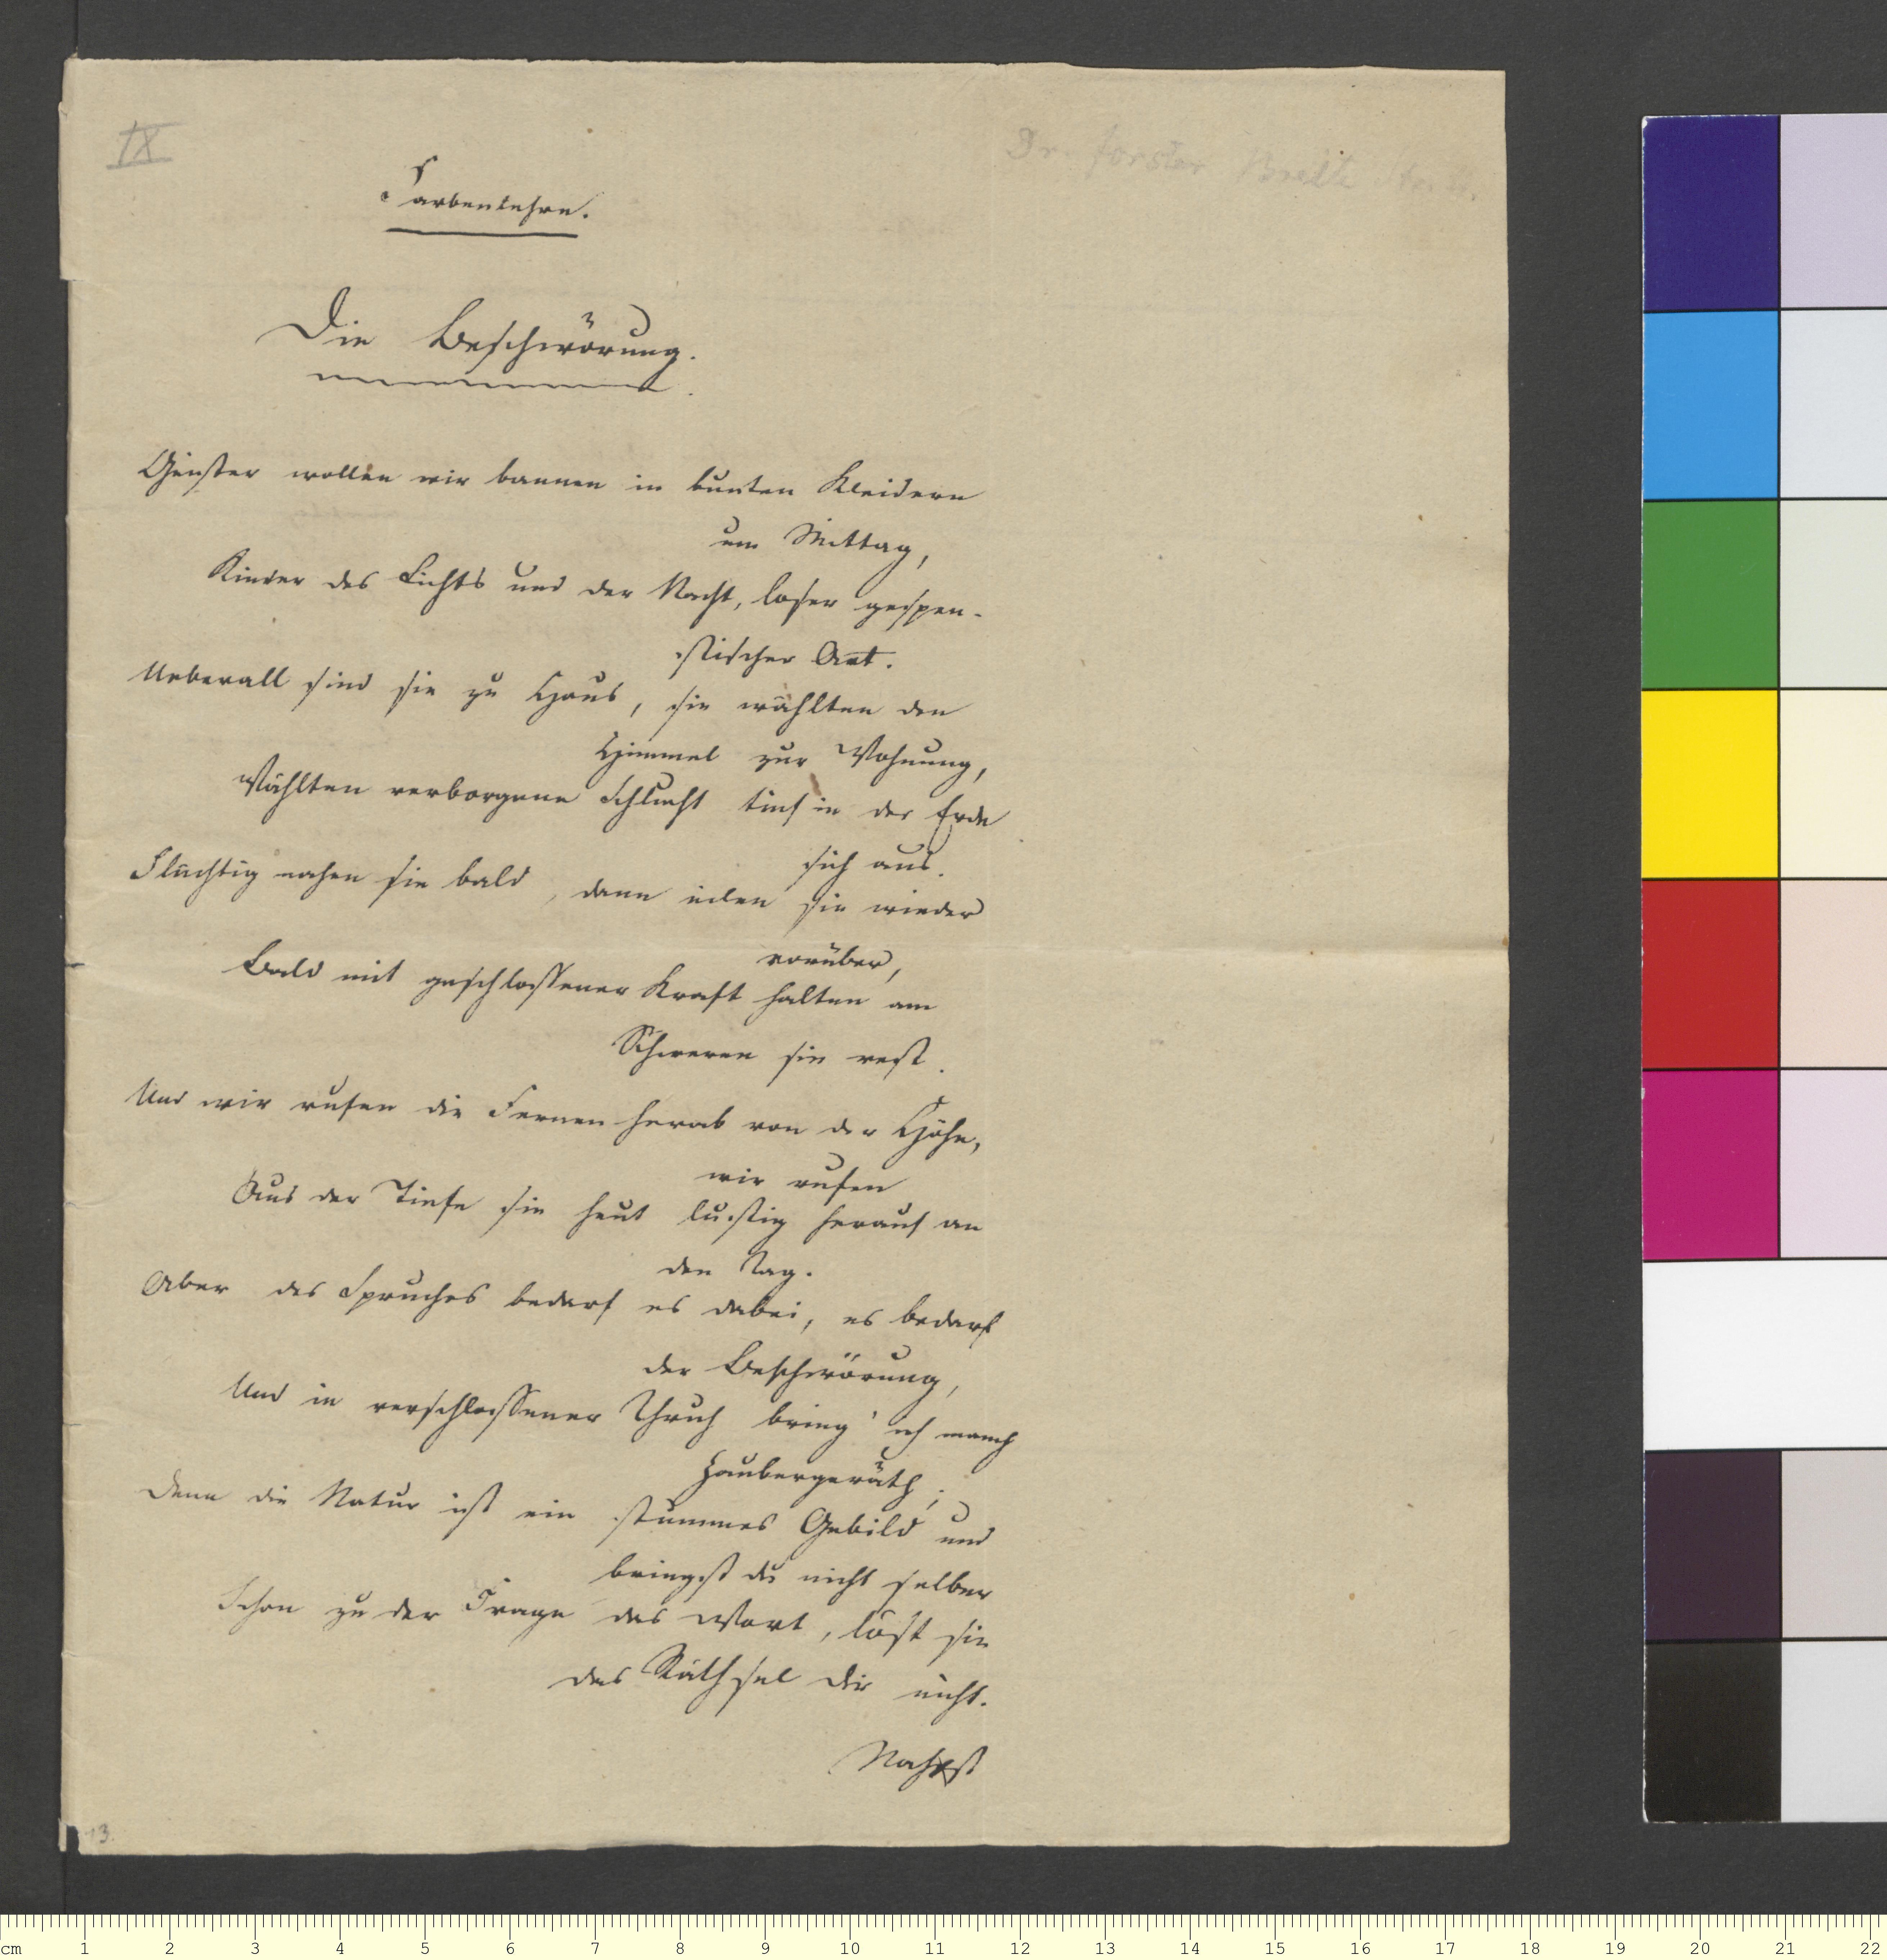 IX
Dr. Forster Breite Str.
Farbenlehre.
Die Beschwörung.
Geister wollen wir bannen in bunten Kleidern
um Mittag,
Kinder des Lichts und der Nacht, loser gespen-
stischer Art.
Ueberall sind sie zu Haus, sie wählten den
Himmel zur Wohnung,
Wählten verborgene Schlucht tief in der Erde
sich aus.
Flüchtig nahen sie bald, dann eilen sie wieder
vorüber,
Bald mit geschlossener Kraft halten am
Schweren sie vest.
Und wir rufen die Fernen herab von der Höhe,
wir rufen
Aus der Tiefe sie heut lustig herauf an
den Tag.
Aber des Spruches bedarf es dabei, es bedarf
der Beschwörung,
Und in verschlossener Thruh bring' ich manch
Zaubergeräth;
Denn die Natur ist ein stummes Gebild und
bringst du nicht selber
Schon zu der Frage das Wort, löst sie
das Räthsel dir nicht.
13.